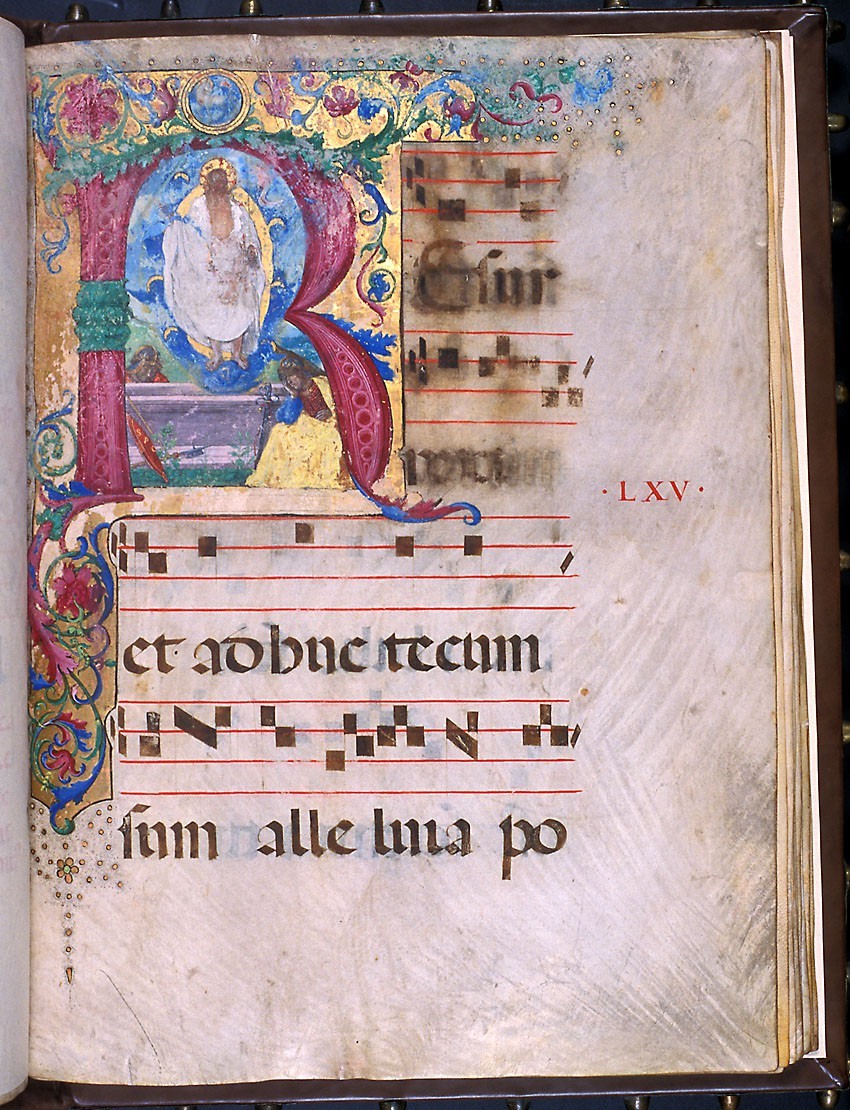 REsur
·LXV·
et adhuc tecum
sum alleluia po